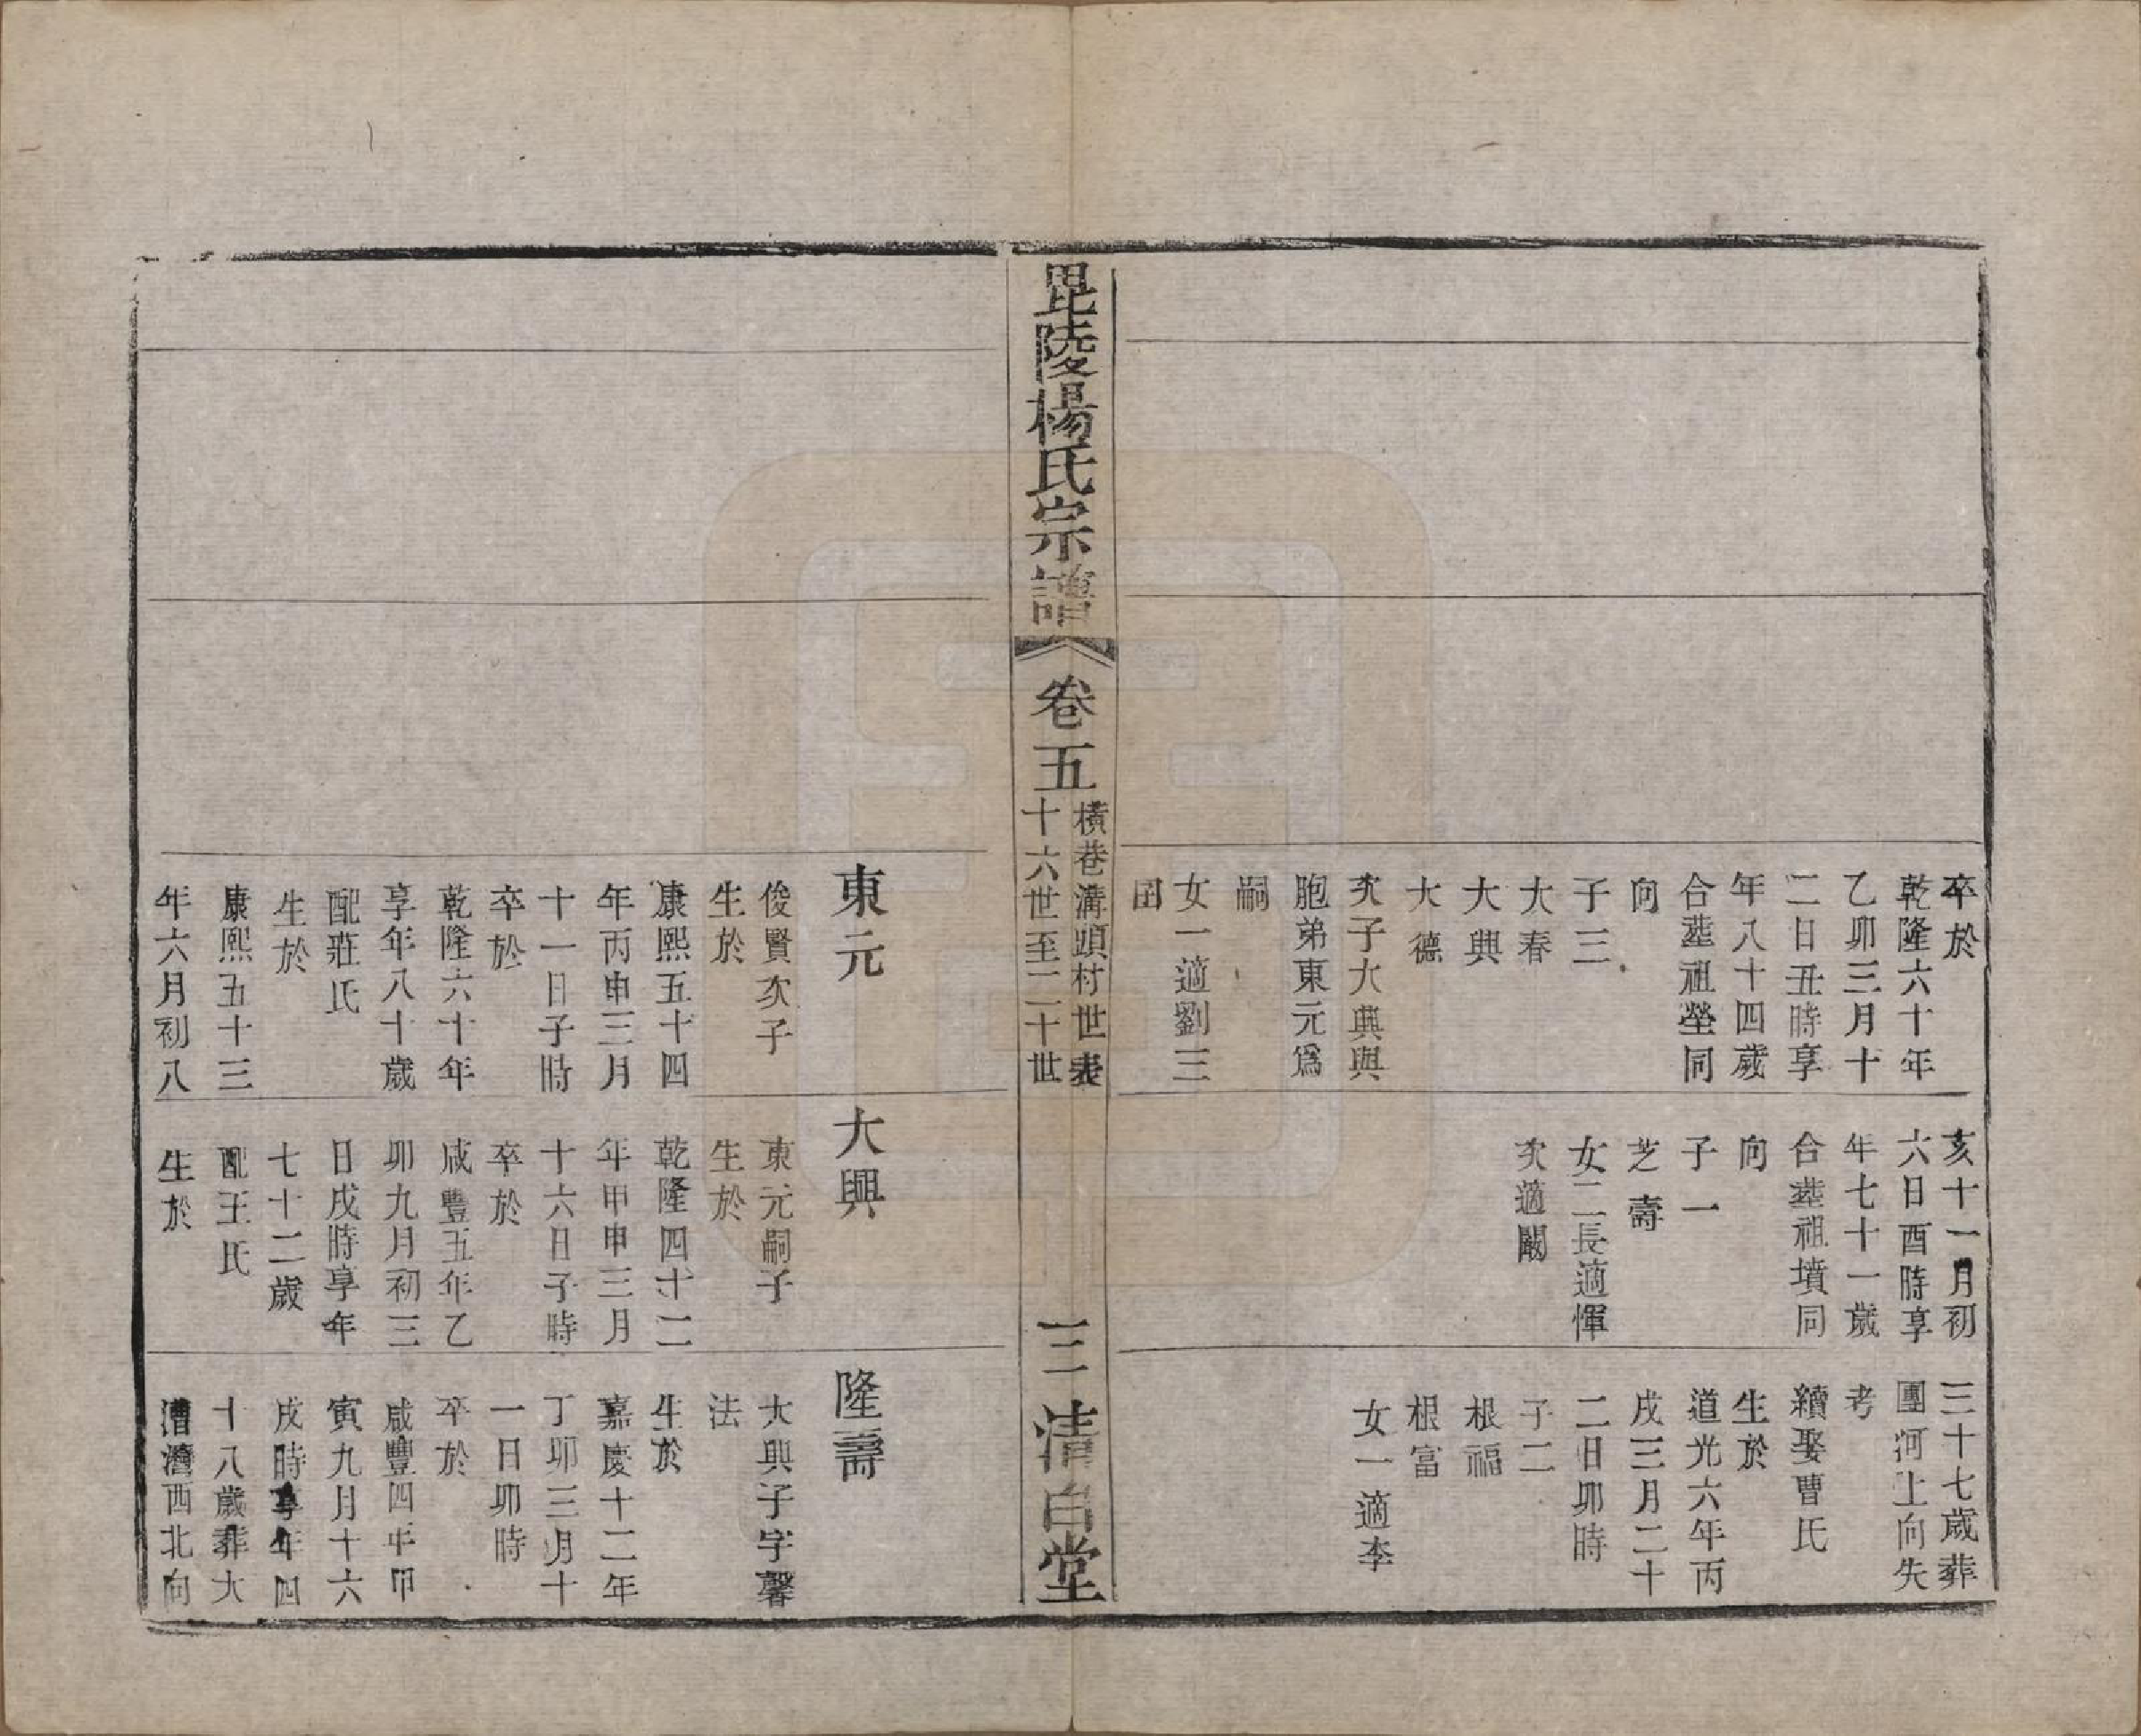 卒於
乾隆六十年
乙卯三月十
二日丑時享
年八十四歲
合塟祖塋同
向
子三
大春
大興
大德
次子大興與
胞弟東元爲
嗣
女一適劉三
困
亥十一月初
六日酉時享
年七十一歲
合塟祖墳同
向
子一
芝壽
女二長適惲
次適闞
三十七歲葬
團河上向先
考
續娶曹氏
生於
道光六年丙
戌三月二十
二日卯時
子二
根福
根富
女一適李
毘陵楊氏宗譜
卷五
橫巷溝頭村世表
十六世至二十世
三
清白堂
東元
俊賢次子
生於
康熙五十四
年丙申三月
十一日子時
卒於
乾隆六十年
享年八十歲
配莊氏
生於
康熙五十三
年六月初八
大興
東元嗣子
生於
乾隆四十二
年甲申三月
十六日子時
卒於
咸豐五年乙
卯九月初三
日戌時享年
七十二歲
配王氏
生於
隆壽
大興子字馨
法
生於
嘉慶十二年
丁卯三月十
一日卯時
卒於
咸豐四年甲
寅九月十六
戌時享年四
十八歲葬大
漕灣西北向